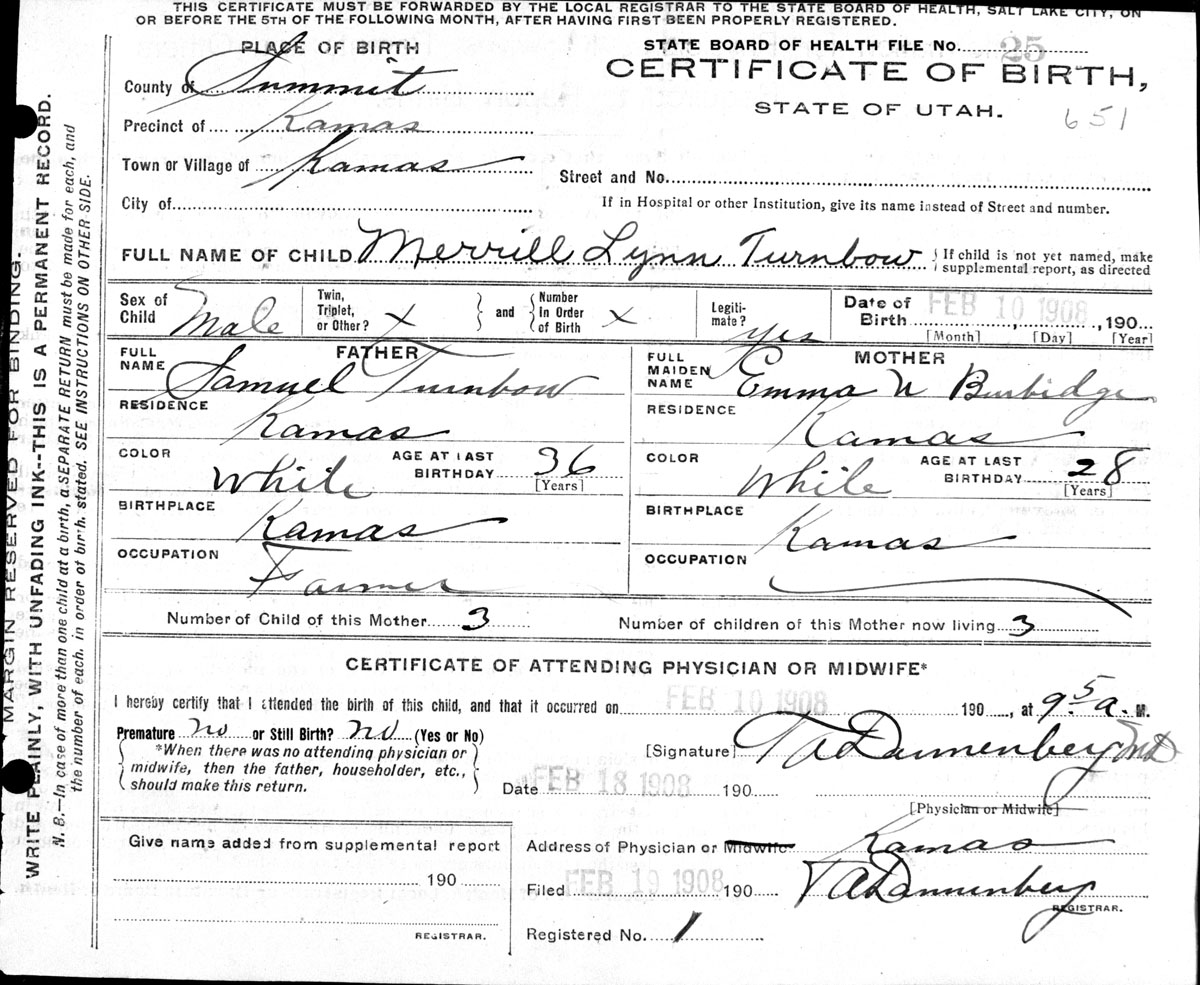 THIS CERTIFICATE MUST BE FORWARDED BY THE LOCAL REGISTRAR TO THE STATE BOARD OF HEALTH, SALT LAKE CITY, ON
OR BEFORE THE 5TH OF THE FOLLOWING MONTH, AFTER HAVING FIRST BEEN PROPERLY REGISTERED.
PLACE OF BIRTH
County of Summit
Precinct of Kamas
Town or Village of Kamas
City of
STATE BOARD OF HEALTH FILE No. 25
CERTIFICATE OF BIRTH,
STATE OF UTAH.
651
Street and No.
If in Hospital or other Institution, give its name instead of Street and number.
FULL NAME OF CHILD Merrill Lynn Turnbow
If child is not yet named, make
supplemental report, as directed
Sex of
Child Male
Twin,
Triplet,
or Other? X
and
Number
In Order
of Birth X
Legiti-
mate? yes
Date of
Birth FEB 10 1908, 190
[Month] [Day] [Year]
FATHER
FULL
NAME Samuel Turnbow
RESIDENCE
Kamas
COLOR
White
AGE AT LAST
BIRTHDAY 36
[Years]
BIRTHPLACE
Kamas
OCCUPATION
Farmer
MOTHER
FULL
MAIDEN
NAME Emma N Burbidge
RESIDENCE
Kamas
COLOR
White
AGE AT LAST
BIRTHDAY 28
[Years]
BIRTHPLACE
Kamas
OCCUPATION
Number of Child of this Mother 3
Number of children of this Mother now living 3
CERTIFICATE OF ATTENDING PHYSICIAN OR MIDWIFE*
I hereby certify that I attended the birth of this child, and that it occurred on FEB 10 1908 190, at 9.5 a. M.
Premature no or Still Birth? no (Yes or No)
*When there was no attending physician or
midwife, then the father, householder, etc.,
should make this return.
[Signature] T A Dannenberg MD
Date FEB 18 1908 190
[Physician or Midwife]
Give name added from supplemental report
190
REGISTRAR.
Address of Physician or Midwife Kamas
Filed FEB 19 1908 190 T A Dannenberg
REGISTRAR.
Registered No. 1
MARGIN RESERVED FOR BINDING.
WRITE PLAINLY, WITH UNFADING INK--THIS IS A PERMANENT RECORD.
N. B.—In case of more than one child at a birth, a SEPARATE RETURN must be made for each, and
the number of each, in order of birth, stated. SEE INSTRUCTIONS ON OTHER SIDE.